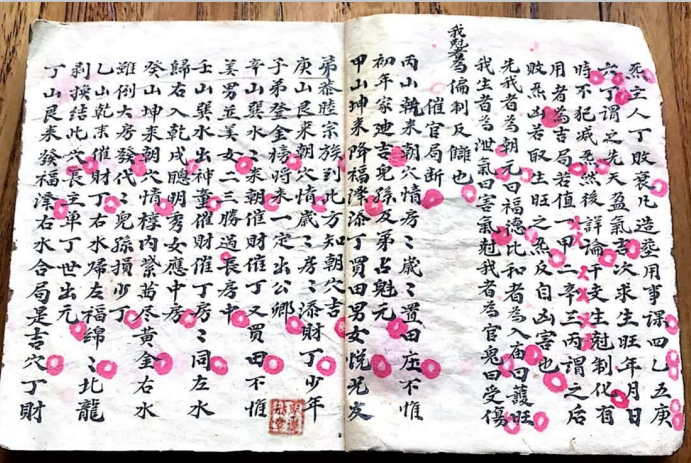 主人丁敗衰凡造塟用事課四乙五庚
六丁謂之先天盈氣吉次求生旺年月日
時不犯減炁然後詳論干支生尅制化有
用者為吉局若值一甲二辛三丙謂之后
敗炁凶若取生旺之炁反自凶害也
先我者為朝元曰福德比和者為入庙曰護旺
我生者為泄氣曰害氣尅我者為官鬼曰受傷
我尅者為偏制反讎也
催官局断
丙山乾来朝穴情房〻歲〻置田庄不惟
初年家廸吉兒孫及第占魁元
甲山坤来降福澤添丁買田男女悦兄友
弟恭睦宗族到此方知朝穴吉
庚山艮来朝穴情歲〻房〻添財丁少年
子弟登金榜將来一定出公卿
辛山巽水〻来朝催財催丁又買田不惟
姜男並美女二三勝過長房中
壬山巽水出神童催財催丁房〻同左水
歸右入乾戌聰明秀女應中房
癸山坤来朝穴情樽内紫尽黄金右水
雖倒大房發代〻兒孫損少丁
乙山乾来催財丁右水歸左福綿〻北龍
剥換結此穴長主單丁世出元
丁山艮来發福澤右水合局是吉穴丁財